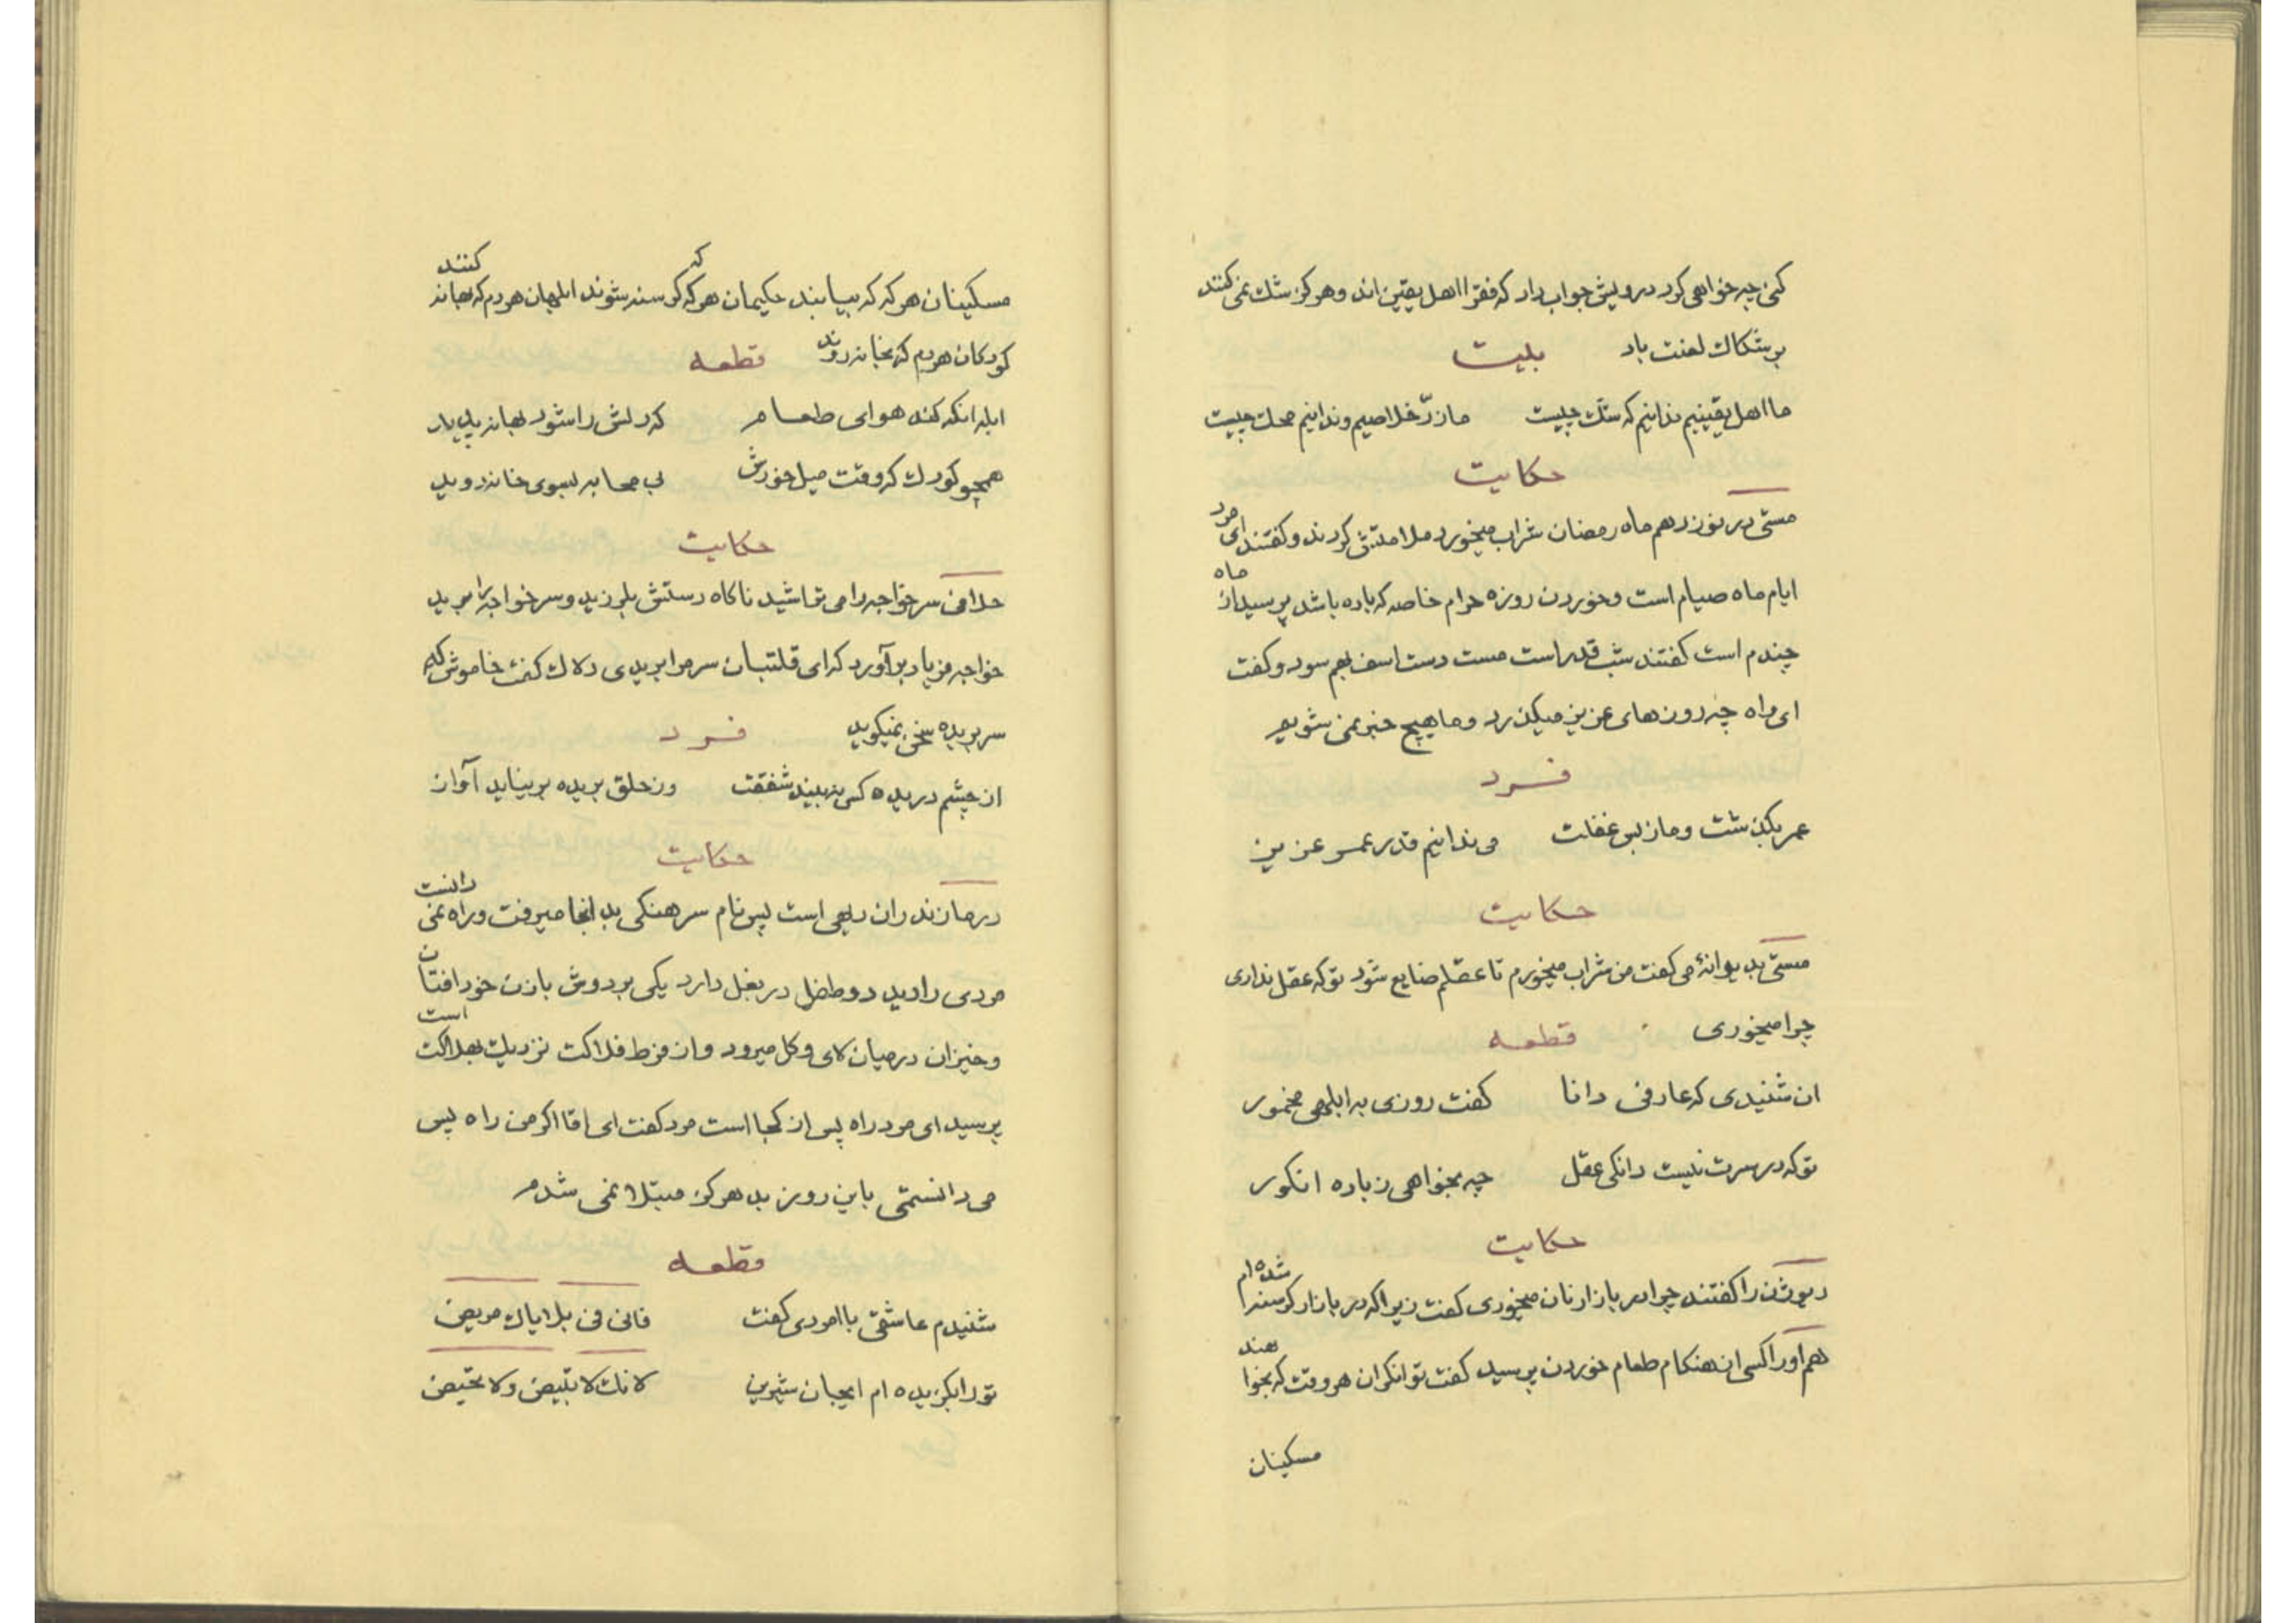 کنی چه خواهی کرد درویش جواب داد که فقرا اهل یقین اند و هرگز شک نمی کنند
بر شکاک لعنت باد بیت
ما اهل یقینیم ندانیم که شک چیست ما زر خلاصیم و ندانیم محک چیست
حکایت
مستی در نوزدهم ماه رمضان شراب میخورد ملامتش کردند و کفتند ای مرد
ایام ماه صیام است و خوردن روزه حرام خاصه که باده باشد پرسید از ماه
چندم است کفتند شب قدر است مست دست اسف بهم سود و کفت
ای واه چه روزهای عزیز میکذرد و ما هیچ خبر نمی شویم
فرد
عمر بکذشت و ما ز بس غفلت می ندانیم قدر عمر عزیز
حکایت
مستی بدیوانهٔ می کفت من شراب میخورم تا عقلم ضایع شود تو که عقل نداری
چرا میخوری قطعه
ان شنیدی که عارفی دانا کفت روزی به ابلهی مخمور
تو که در سرت نیست دانکی عقل چه بخواهی ز باده انکور
حکایت
دیوژن را کفتند چرا در بازار نان میخوری کفت زیرا که در بازار کرسنه شده ام
هم او را کسی از هنکام طعام خوردن پرسید کفت توانکران هر وقت که بخواهند
مسکینان
مسکینان هر که که بیابند حکیمان هر که که کرسنه شوند ابلهان هر دم که بهانه کنند
کودکان هر دم که بخانه روند قطعه
ابله انکه کند هوای طعام که دلش را شود بهانه پدید
همچو کودک که وقت میل خورش بی محابه بسوی خانه دوید
حکایت
حلاقی سر خواجه را می تراشید ناکاه دستش بلرزید و سر خواجه را برید
خواجه فریاد برآورد که ای قلتبان سر مرا بریدی دلاک کفت خاموش که
سر بریده سخن نمیکوید فرد
از چشم دریده کس نبیند شفقت وز حلق بریده بر نیاید آواز
حکایت
در مازندران دهی است پس نام سرهنکی بد انجا میرفت و راه نمی دانست
مردی را دید دو طفل در بغل دارد یکی بر دوش با زن خود افتان
و خیزان در میان لای و کل میرود و از فرط فلاکت نزدیک بهلاکت است
پرسید ای مرد راه پس از کجا است مرد کفت ای اقا اکر من راه پس
می دانستمی باین روز بد هرکز مبتلا نمی شدم
قطعه
شنیدم عاشقی با امردی کفت فانی فی بلایاک مریض
تو را بکزیده ام ایجان شیرین لانک لا تبیض ولا تحیض